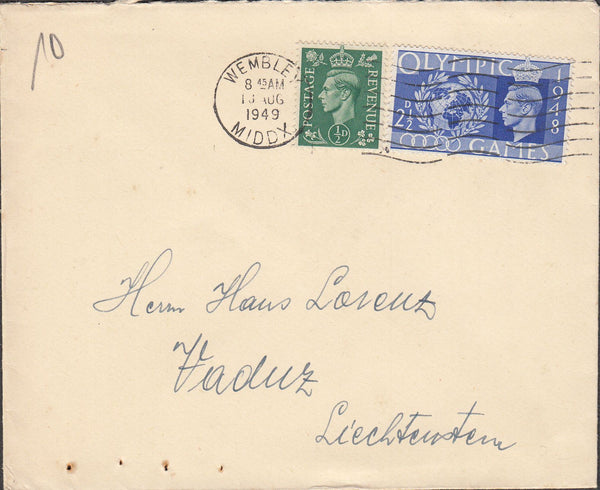 10
WEMBLEY
8 45AM
10 AUG
1949
MIDDX
POSTAGE
REVENUE
½D
OLYMPIC
1948
2½D
GAMES
Herrn Hans Lorenz
Vaduz
Liechtenstein